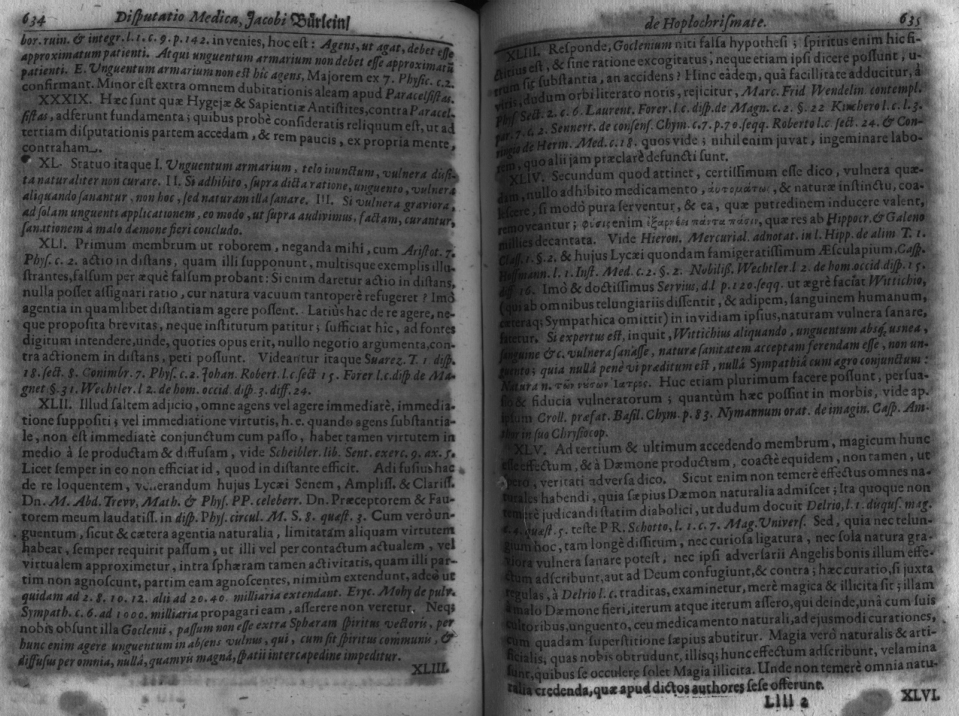 634 Disputatio Medica, Jacobi Bürlein/
bor. ruin. & integr. l. 1. c. 9. p. 142. invenies, hoc est: Agens, ut agat, debet esse
approximatum patienti. Atqui unguentum armarium non debet esse approximatū
patienti. E. Unguentum armarium non est hic agens, Majorem ex 7. Physic. c. 2.
confirmant. Minor est extra omnem dubitationis aleam apud Paracelsistas.
XXXIX. Hæc sunt quæ Hygejæ & Sapientiæ Antistites, contra Paracel-
sistas, adferunt fundamenta; quibus probè consideratis reliquum est, ut ad
tertiam disputationis partem accedam, & rem paucis, ex propria mente,
contraham.
XL. Statuo itaque I. Unguentum armarium, telo inunctum, vulnera dissi-
ta naturaliter non curare. II. Si adhibito, supra dicta ratione, unguento, vulnera
aliquando sanantur, non hoc, sed naturam illa sanare. III. Si vulnera graviora,
ad solam unguenti applicationem, eo modo, ut supra audivimus, factam, curantur,
sanationem à malo dæmone fieri concludo.
XLI. Primum membrum ut roborem, neganda mihi, cum Aristot. 7.
Phys. c. 2. actio in distans, quam illi supponunt, multisque exemplis illu-
strantes, falsum per æquè falsum probant: Si enim daretur actio in distans,
nulla posset assignari ratio, cur natura vacuum tantoperè refugeret? Imò
agentia in quamlibet distantiam agere possent. Latiùs hac de re agere, ne-
que proposita brevitas, neque institutum patitur; sufficiat hic, ad fontes
digitum intendere, unde, quoties opus erit, nullo negotio argumenta, con-
tra actionem in distans, peti possunt. Videantur itaque Suarez. T. 1. disp.
18. sect. 8. Conimbr. 7. Phys. c. 2. Johan. Robert. l. c. sect 15. Forer l. c. disp. de Ma-
gnet §. 31. Wechtler. l 2. de hom. occid. disp. 3. diff. 24.
XLII. Illud saltem adjicio, omne agens vel agere immediatè, immedia-
tione suppositi; vel immediatione virtutis, h. e. quando agens substantia-
le, non est immediatè conjunctum cum passo, habet tamen virtutem in
medio à se productam & diffusam, vide Scheibler. lib. Sent. exerc. 9. ax. 5.
Licet semper in eo non efficiat id, quod in distante efficit. Adi fusiùs hac
de re loquentem, venerandum hujus Lycæi Senem, Ampliss. & Clariss.
Dn. M. Abd. Trevv, Math. & Phys. PP. celeberr. Dn. Præceptorem & Fau-
torem meum laudatiss. in disp. Phys. circul. M. S. 8. quæst. 3. Cum verò un-
guentum, sicut & cætera agentia naturalia, limitatam aliquam virtutem
habeat, semper requirit passum, ut illi vel per contactum actualem, vel
virtualem approximetur, intra sphæram tamen activitatis, quam illi par-
tim non agnoscunt, partim eam agnoscentes, nimiùm extendunt, adeò ut
quidam ad 2. 8. 10. 12. alii ad 20. 40. milliaria extendant. Eryc. Mohy de pulv.
Sympath. c. 6. ad 1000. milliaria propagari eam, asserere non veretur. Neq;
nobis obsunt illa Goclenii, passum non esse extra Spharam spiritus vectorii, per
hunc enim agere unguentum in absens vulnus, qui, cum sit spiritus communis, &
diffusus per omnia, nullâ, quamvis magnâ, spatii intercapedine impeditur.
XLIII.
de Hoplochrismate. 635
XLIII. Responde, Goclenium niti falsa hypothesi; spiritus enim hic fi-
ctitius est, & sine ratione excogitatus, neque etiam ipsi dicere possunt, u-
trum sit substantia, an accidens? Hinc eâdem, quâ facilitate adducitur, à
viris, dudum orbi literato notis, rejicitur, Marc. Frid Wendelin. contempl.
Phys Sect. 2. c. 6. Laurent. Forer. l. c. disp. de Magn. c. 2. §. 22 Kircher o l. c. l. 3.
par. 7. c. 2. Sennert. de consens. Chym. c. 7. p. 70. seqq. Roberto l. c. sect. 24. & Con-
ringio de Herm. Med. c. 18. quos vide; nihil enim juvat, ingeminare labo-
rem, quo alii jam præclarè defuncti sunt.
XLIV. Secundum quod attinet, certissimum esse dico, vulnera quæ-
dam, nullo adhibito medicamento, αὐτομάτως, & naturæ instinctu, coa-
lescere, si modò pura serventur, & ea, quæ putredinem inducere valent,
removeantur; φύσις enim ἐξαρκέει πάντα πᾶσι, quæ res ab Hippocr. & Galeno
millies decantata. Vide Hieron. Mercurial. adnotat. in l. Hipp. de alim T. 1.
Class. 1. §. 2. & hujus Lycæi quondam famigeratissimum Æsculapium, Casp.
Hoffmann. l. 1. Inst. Med. c. 2. §. 2. Nobiliss. Wechtler. l 2. de hom. occid. disp. 15.
diff 16. Imò & doctissimus Servius, d. l p. 120. seqq. ut ægrè faciat Wittichio,
(qui ab omnibus telungiariis dissentit, & adipem, sanguinem humanum,
cæteraq; Sympathica omittit) in invidiam ipsius, naturam vulnera sanare,
fatetur. Si expertus est, inquit, Wittichius aliquando, unguentum absq; usnea,
sanguine &c. vulnera sanasse, naturæ sanitatem acceptam ferendam esse, non un-
guento; quia nullâ penè vi præditum est, nullâ Sympathiâ cum agro conjunctum:
Natura n. τῶν νούσων Ἰατρός. Huc etiam plurimum facere possunt, persua-
sio & fiducia vulneratorum; quantùm hæc possint in morbis, vide ap.
ipsum Croll. præfat. Basil. Chym. p. 83. Nymannum orat. de imagin. Casp. Am-
thor in suo Chrysocop.
XLV. Ad tertium & ultimum accedendo membrum, magicum hunc
esse effectum, & à Dæmone productum, coactè equidem, non tamen, ut
spero, veritati adversa dico. Sicut enim non temerè effectus omnes na-
turales habendi, quia sæpius Dæmon naturalia admiscet; Ita quoque non
temerè judicandi statim diabolici, ut dudum docuit Delrio, l. 1. disqus. mag.
c. 4. quæst. 5. teste P R. Schotto, l. 1. c. 7. Mag. Univers. Sed, quia nec telun-
gium hoc, tam longè dissitum, nec curiosa ligatura, nec sola natura gra-
viora vulnera sanare potest, nec ipsi adversarii Angelis bonis illum effe-
ctum adscribunt, aut ad Deum confugiunt, & contra; hæc curatio, si juxta
regulas, à Delrio l. c. traditas, examinetur, merè magica & illicita sit; illam
à malo Dæmone fieri, iterum atque iterum assero, qui deinde, unà cum suis
cultoribus, unguento, ceu medicamento naturali, ad ejusmodi curationes,
cum quadam superstitione sæpius abutitur. Magia verò naturalis & arti-
ficialis, quas nobis obtrudunt, illisq; hunc effectum adscribunt, velamina
sunt, quibus se occulere solet Magia illicita. Unde non temerè omnia natu-
ralia credenda, quæ apud dictos authores sese offerunt.
Llll 2 XLVI.